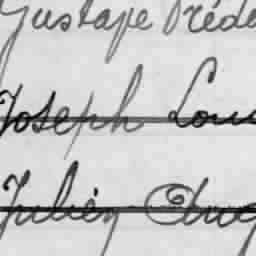 Gustave Fréde
Joseph Lou
Julien Aug